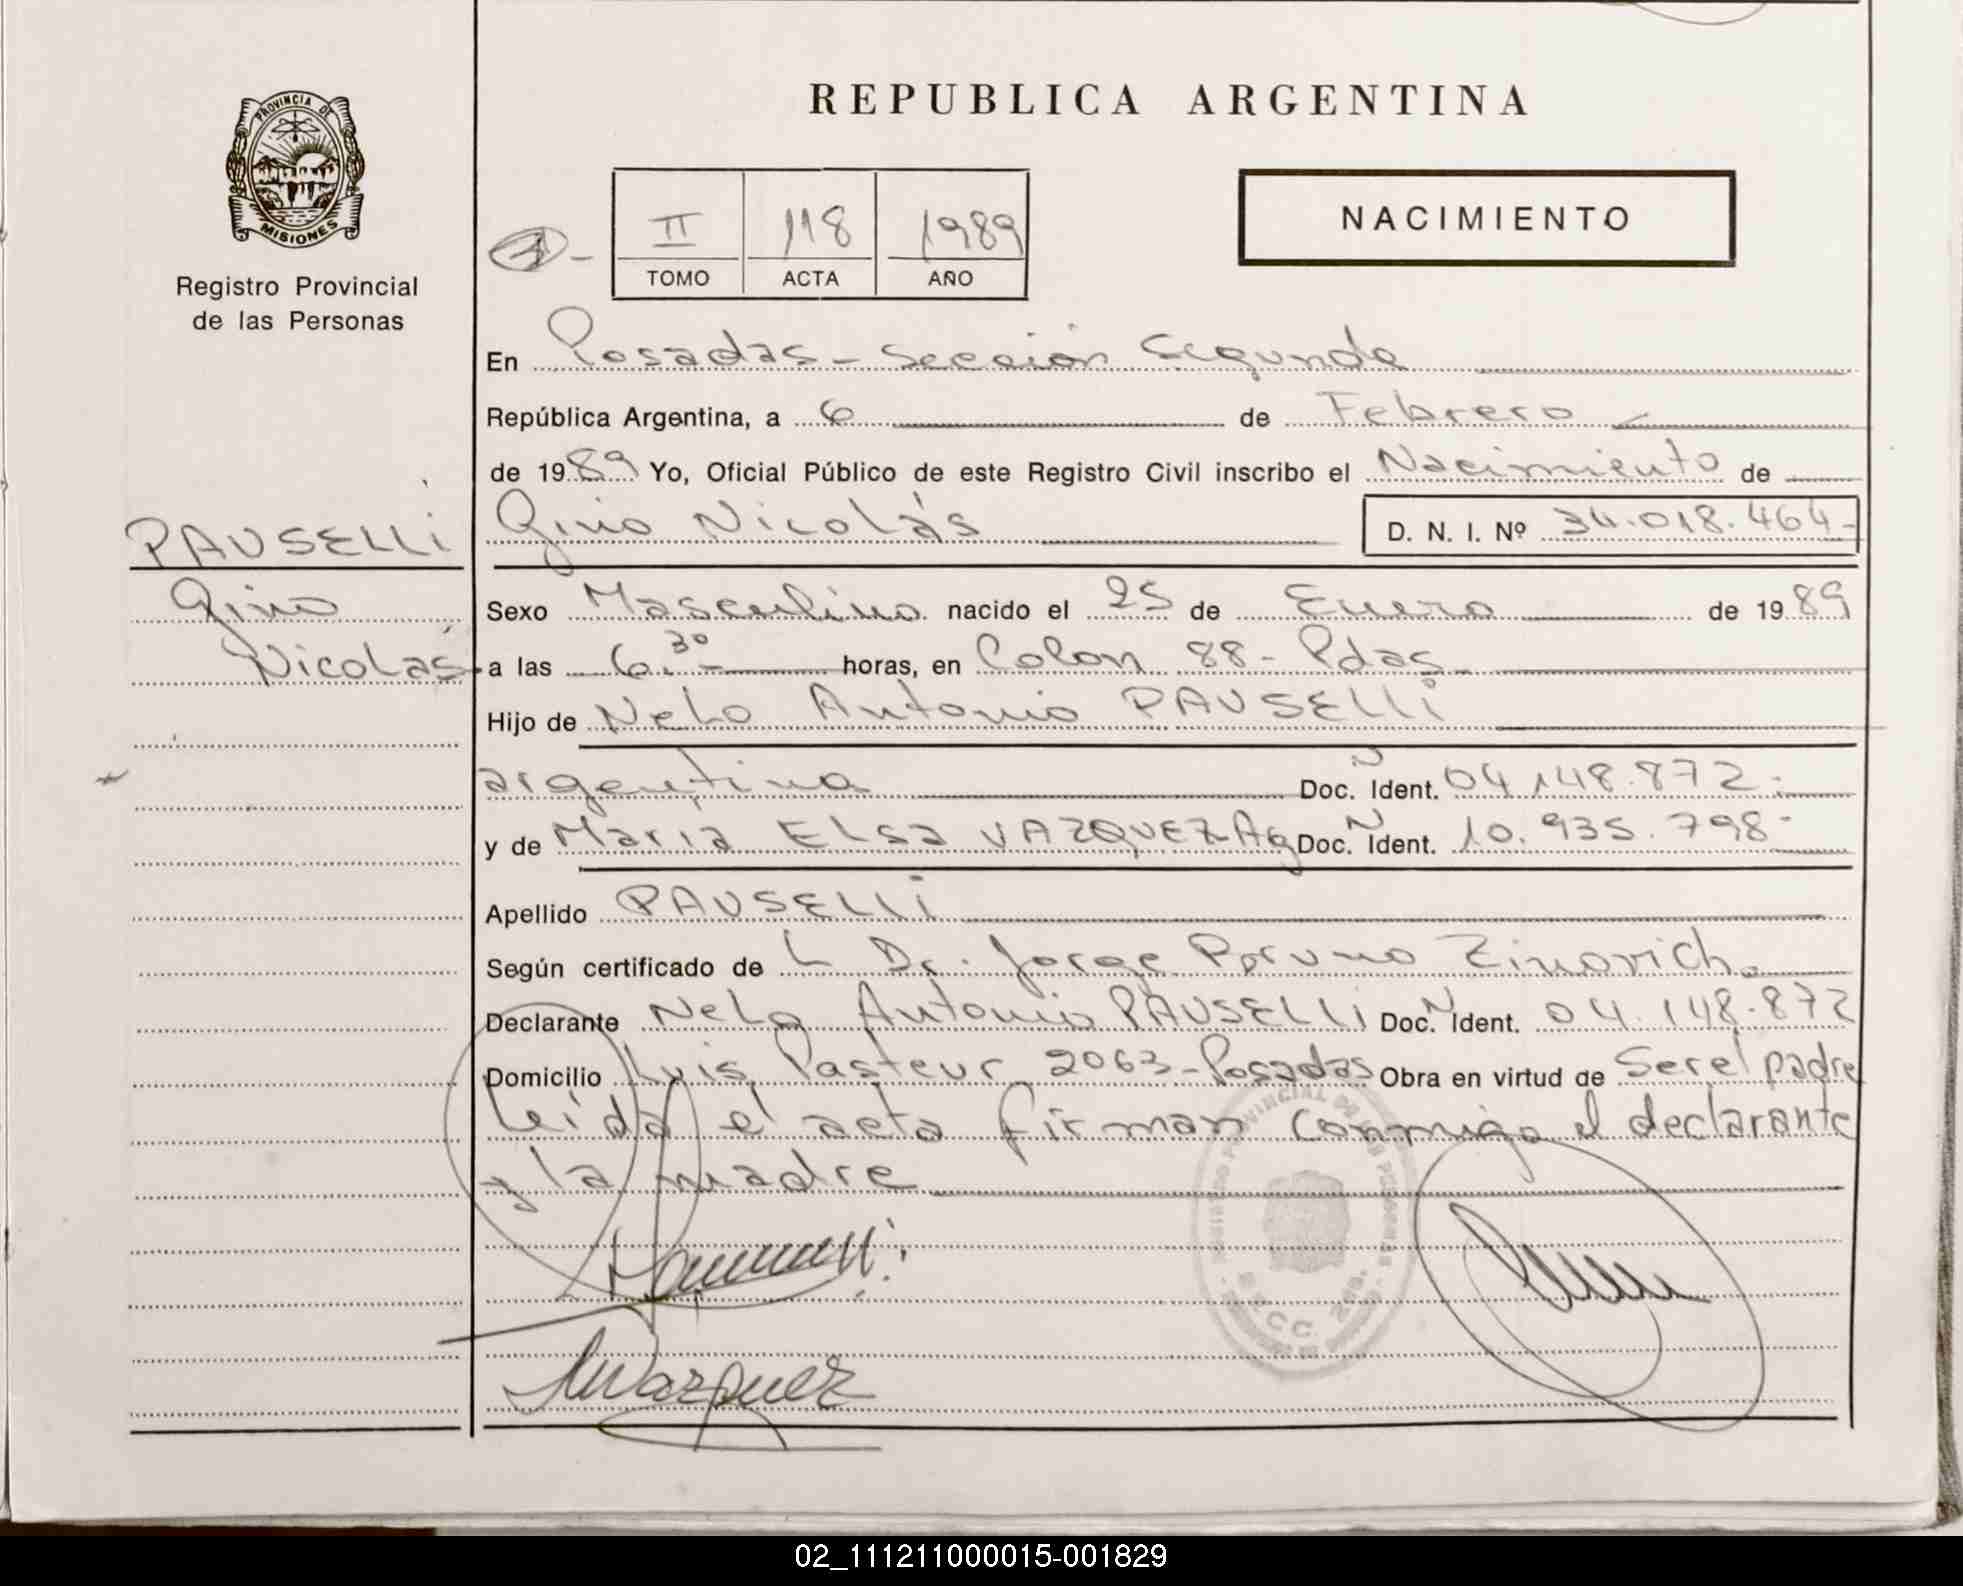 REPUBLICA ARGENTINA
PROVINCIA DE
MISIONES
Registro Provincial
de las Personas
II 118 1989
TOMO ACTA AÑO
NACIMIENTO
En Posadas - Sección Segunda
República Argentina, a 6 de Febrero
de 1989 Yo, Oficial Público de este Registro Civil inscribo el Nacimiento de
PAUSELLI
Gino Nicolás
Gino Nicolás D. N. I. Nº 34.018.464-
Sexo Masculino nacido el 25 de Enero de 1989
a las 6.30- horas, en Colon 88 - Pdas
Hijo de Nelo Antonio PAUSELLI
argentina Doc. N Ident. 04.148.872-
y de Maria Elsa VAZQUEZ Ag Doc. N Ident. 10.935.798-
Apellido PAUSELLI
Según certificado de L Dr. Jorge Bruno Zinovich.
Declarante Nelo Antonio PAUSELLI Doc. N Ident. 04.148.872
Domicilio Luis Pasteur 2063 - Posadas Obra en virtud de Ser el padre
Leida el acta firman conmigo el declarante
y la madre
Vazquez
02_111211000015-001829